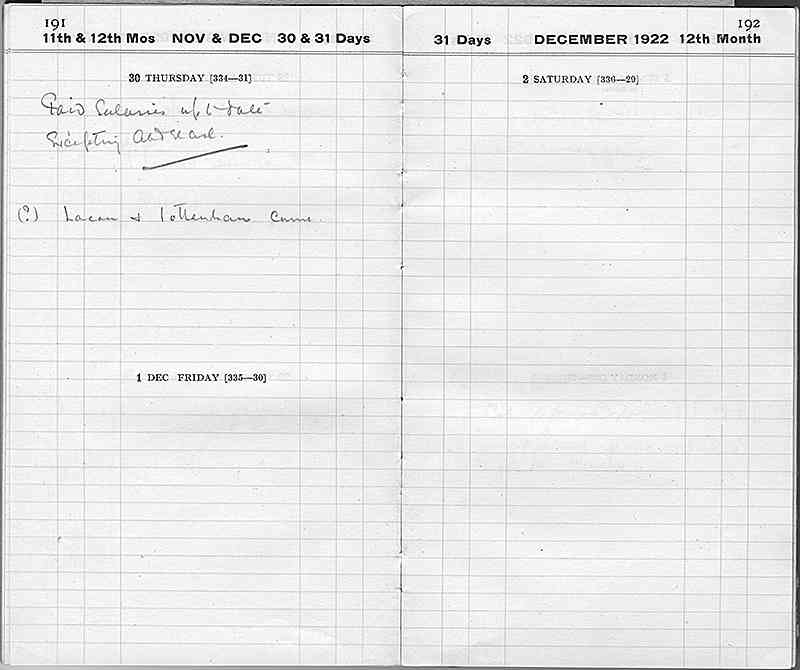 191
11th & 12th Mos NOV & DEC 30 & 31 Days
30 THURSDAY [334—31]
Paid Salaries up to date
Excepting
(?) Lacau & Tottenham came.
1 DEC FRIDAY [335—30]
192
31 Days DECEMBER 1922 12th Month
2 SATURDAY [336—29]